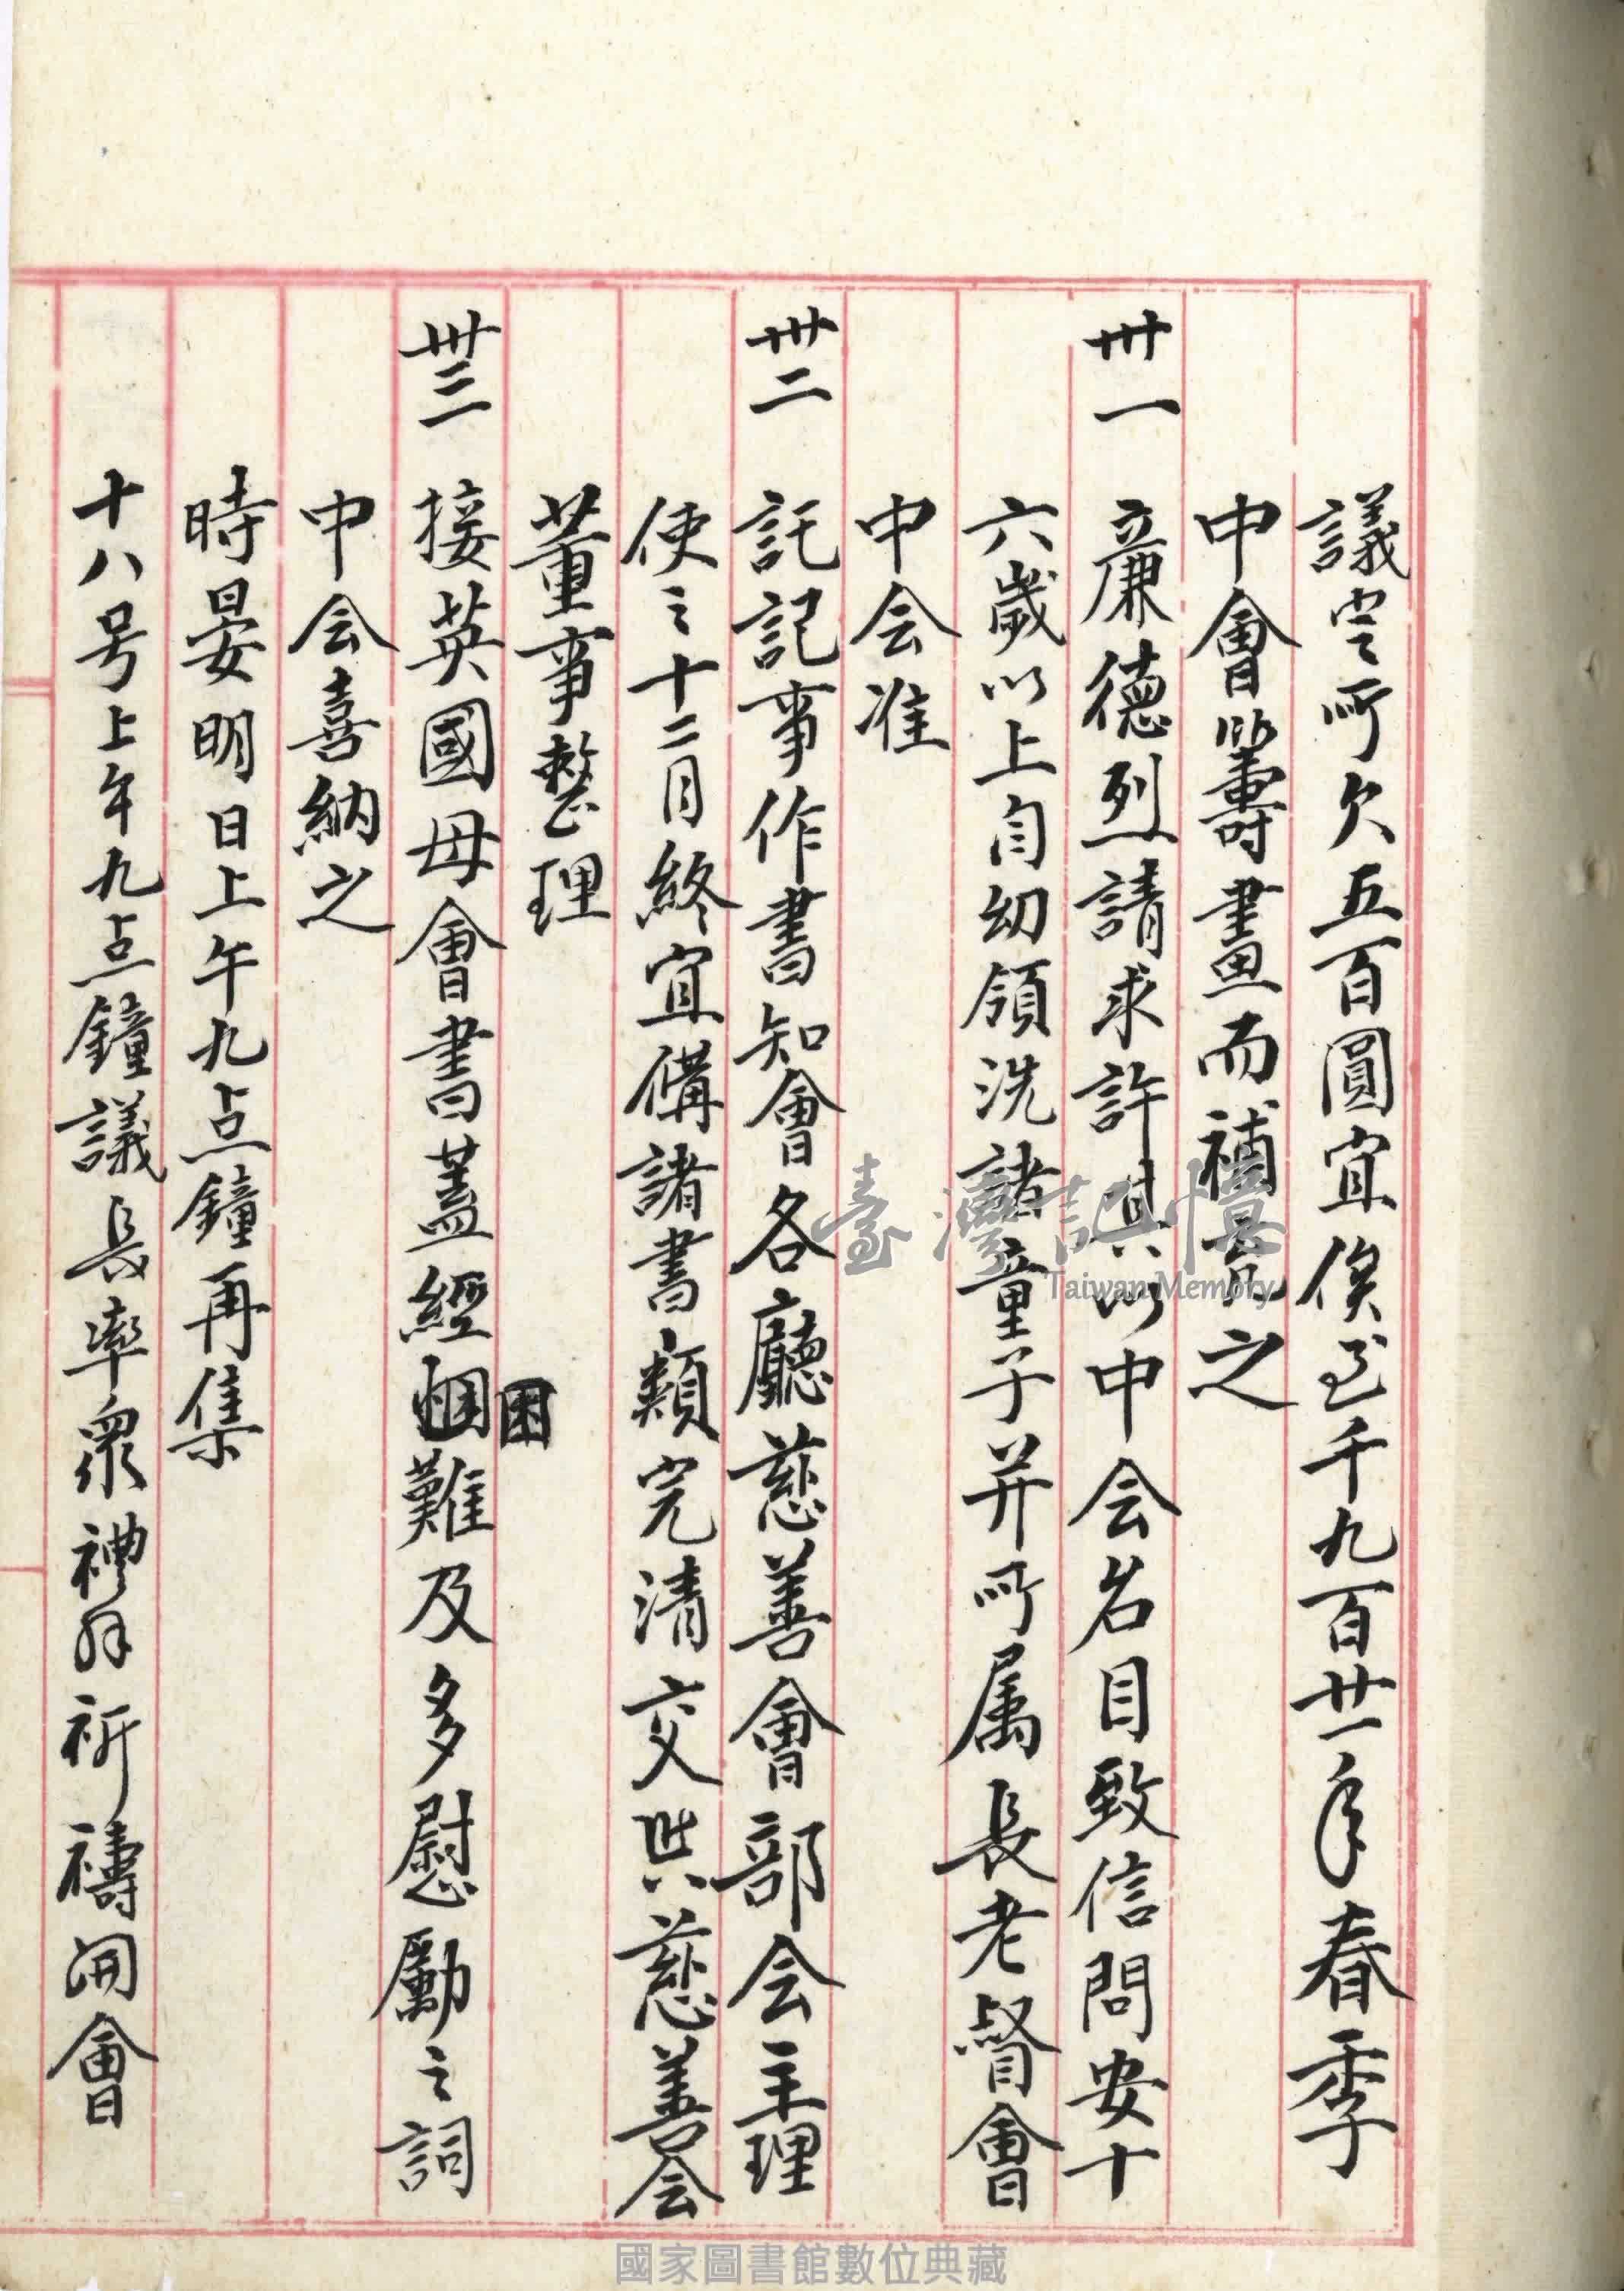 議定所欠五百圓宜俟至千九百廿一年春季
中會籌畫而補足之
卅一 廉德烈請求許其以中会名目致信問安十
六歲以上自幼領洗諸童子并所属長老督會
中会准
卅二 託記事作書知會各廳慈善會部会主理
使之十二月終宜備諸書類完清交與慈善会
董事整理
卅三 接英國母會書蓋經困難及多慰勵之詞
困
中会喜納之
時晏明日上午九点鐘再集
十八号上午九点鐘議長率衆禮拜祈禱開會
臺灣記憶
Taiwan Memory
國家圖書館數位典藏